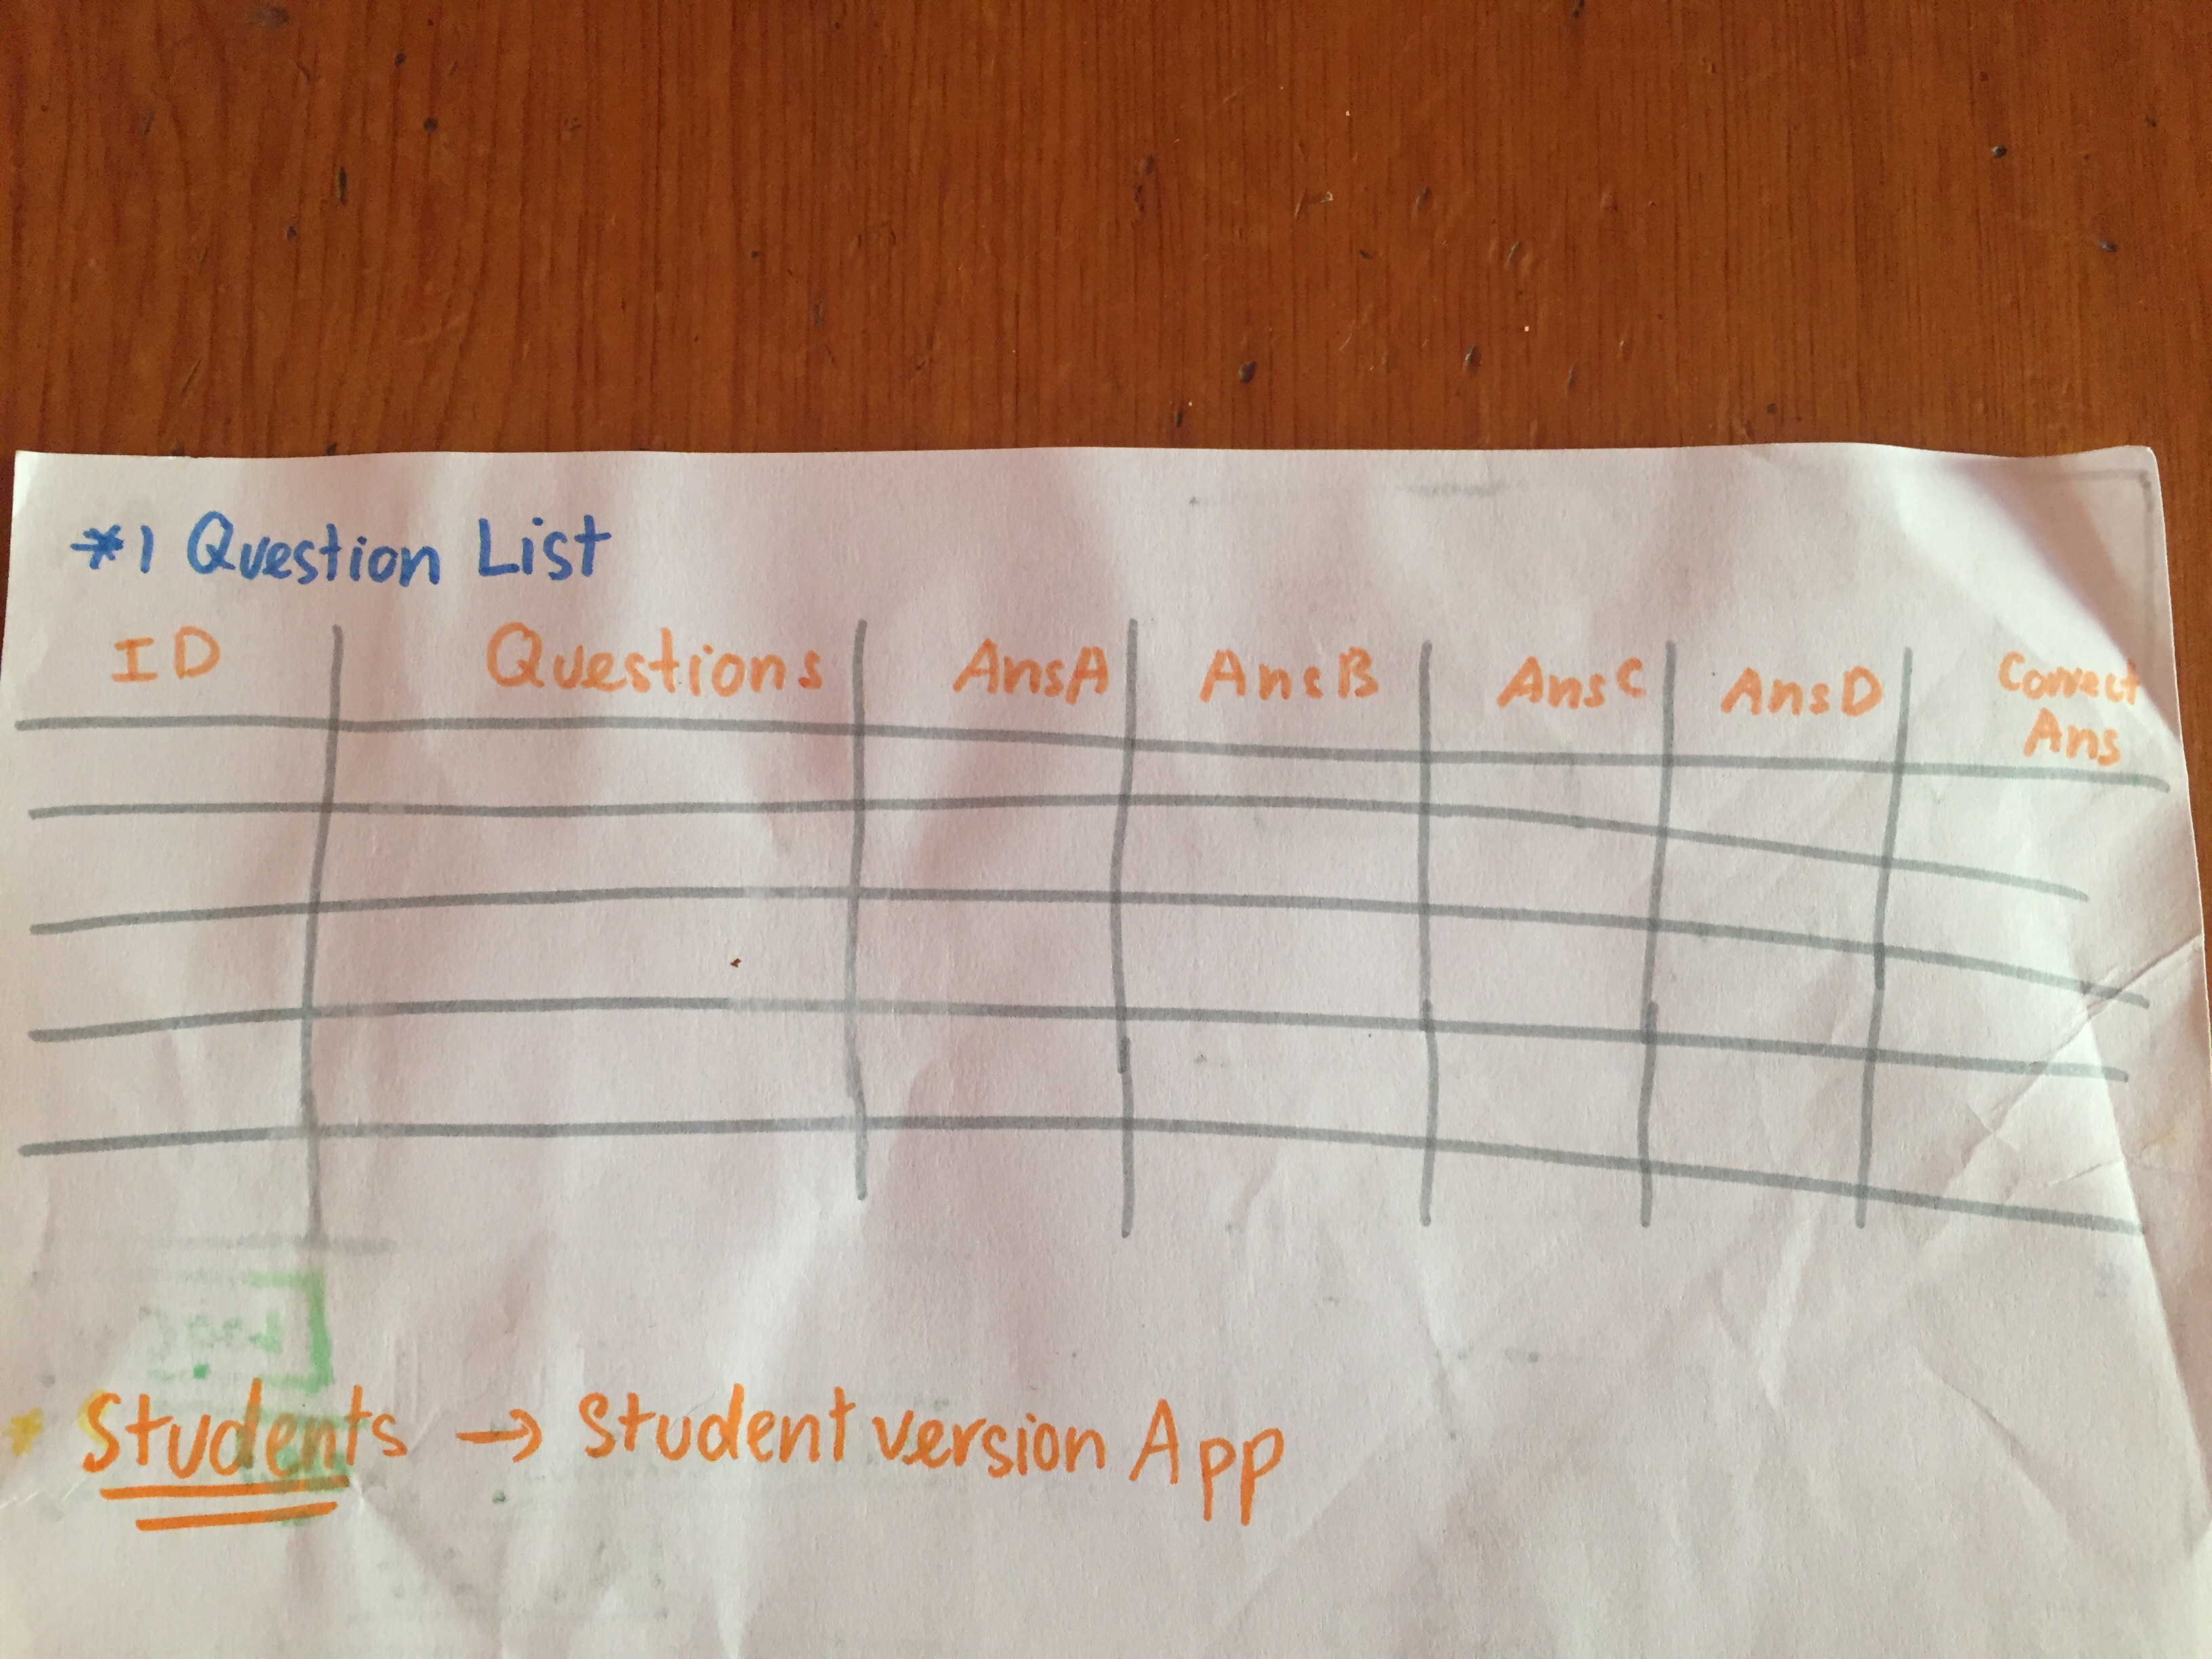 *1 Question List
ID Questions AnsA AnsB AnsC AnsD Correct Ans
* Students → Student version App